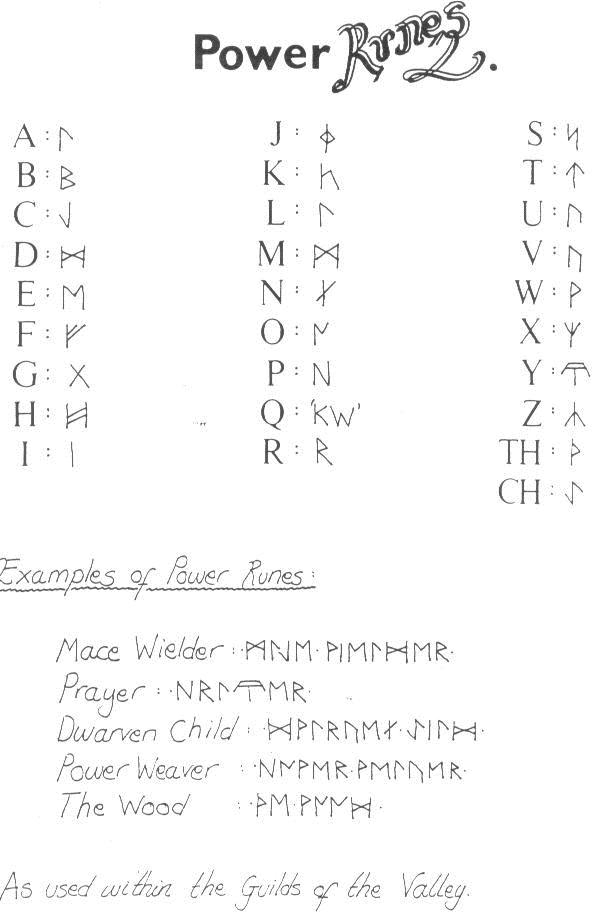 Power Runes.
A : J : ᛄ S : ᛋ
B : ᛒ K : T : ᛏ
C : L : ᛚ U : ᚢ
D : ᛞ M : ᛗ V :
E : ᛖ N : ᚾ W : ᚹ
F : ᚠ O : X : ᛉ
G : ᚷ P : Y :
H : ᚻ Q : 'KW' Z : ᛣ
I : ᛁ R : ᚱ TH : ᚦ
CH : ᛇ
Examples of Power Runes:
Mace Wielder : · ᚹᛁᛖᛚᛞᛖᚱ·
Prayer :
Dwarven Child :
Power Weaver :
The Wood : ·ᚦᛖ·
As used within the Guilds of the Valley.